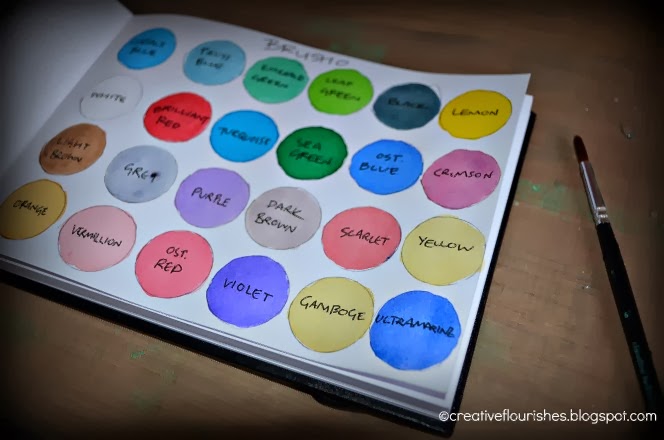 BRUSHO
COBALT
BLUE
PRUSS
BLUE
EMERALD
GREEN
LEAF
GREEN
BLACK
LEMON
WHITE
BRILLIANT
RED
TURQUOISE
SEA
GREEN
OST.
BLUE
CRIMSON
LIGHT
BROWN
GREY
PURPLE
DARK
BROWN
SCARLET
YELLOW
ORANGE
VERMILLION
OST.
RED
VIOLET
GAMBOGE
ULTRAMARINE
©creativeflourishes.blogspot.com